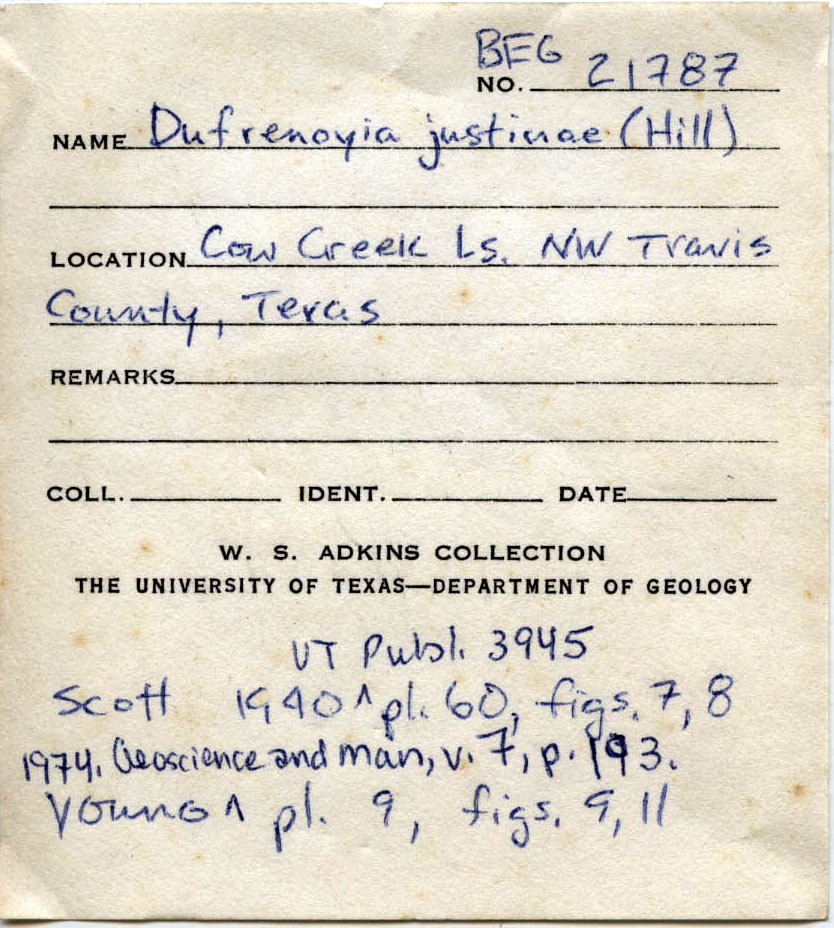 BEG
NO. 21787
NAME Dufrenoyia justinae (Hill)
LOCATION Cow Creek Ls. NW Travis
County, Texas
REMARKS
COLL. IDENT. DATE
W. S. ADKINS COLLECTION
THE UNIVERSITY OF TEXAS—DEPARTMENT OF GEOLOGY
UT Publ. 3945
Scott 1940 ^ pl. 60, figs. 7, 8
1974. Geoscience and man, v. 7, p. 193.
Young ^ pl. 9, figs. 9, 11